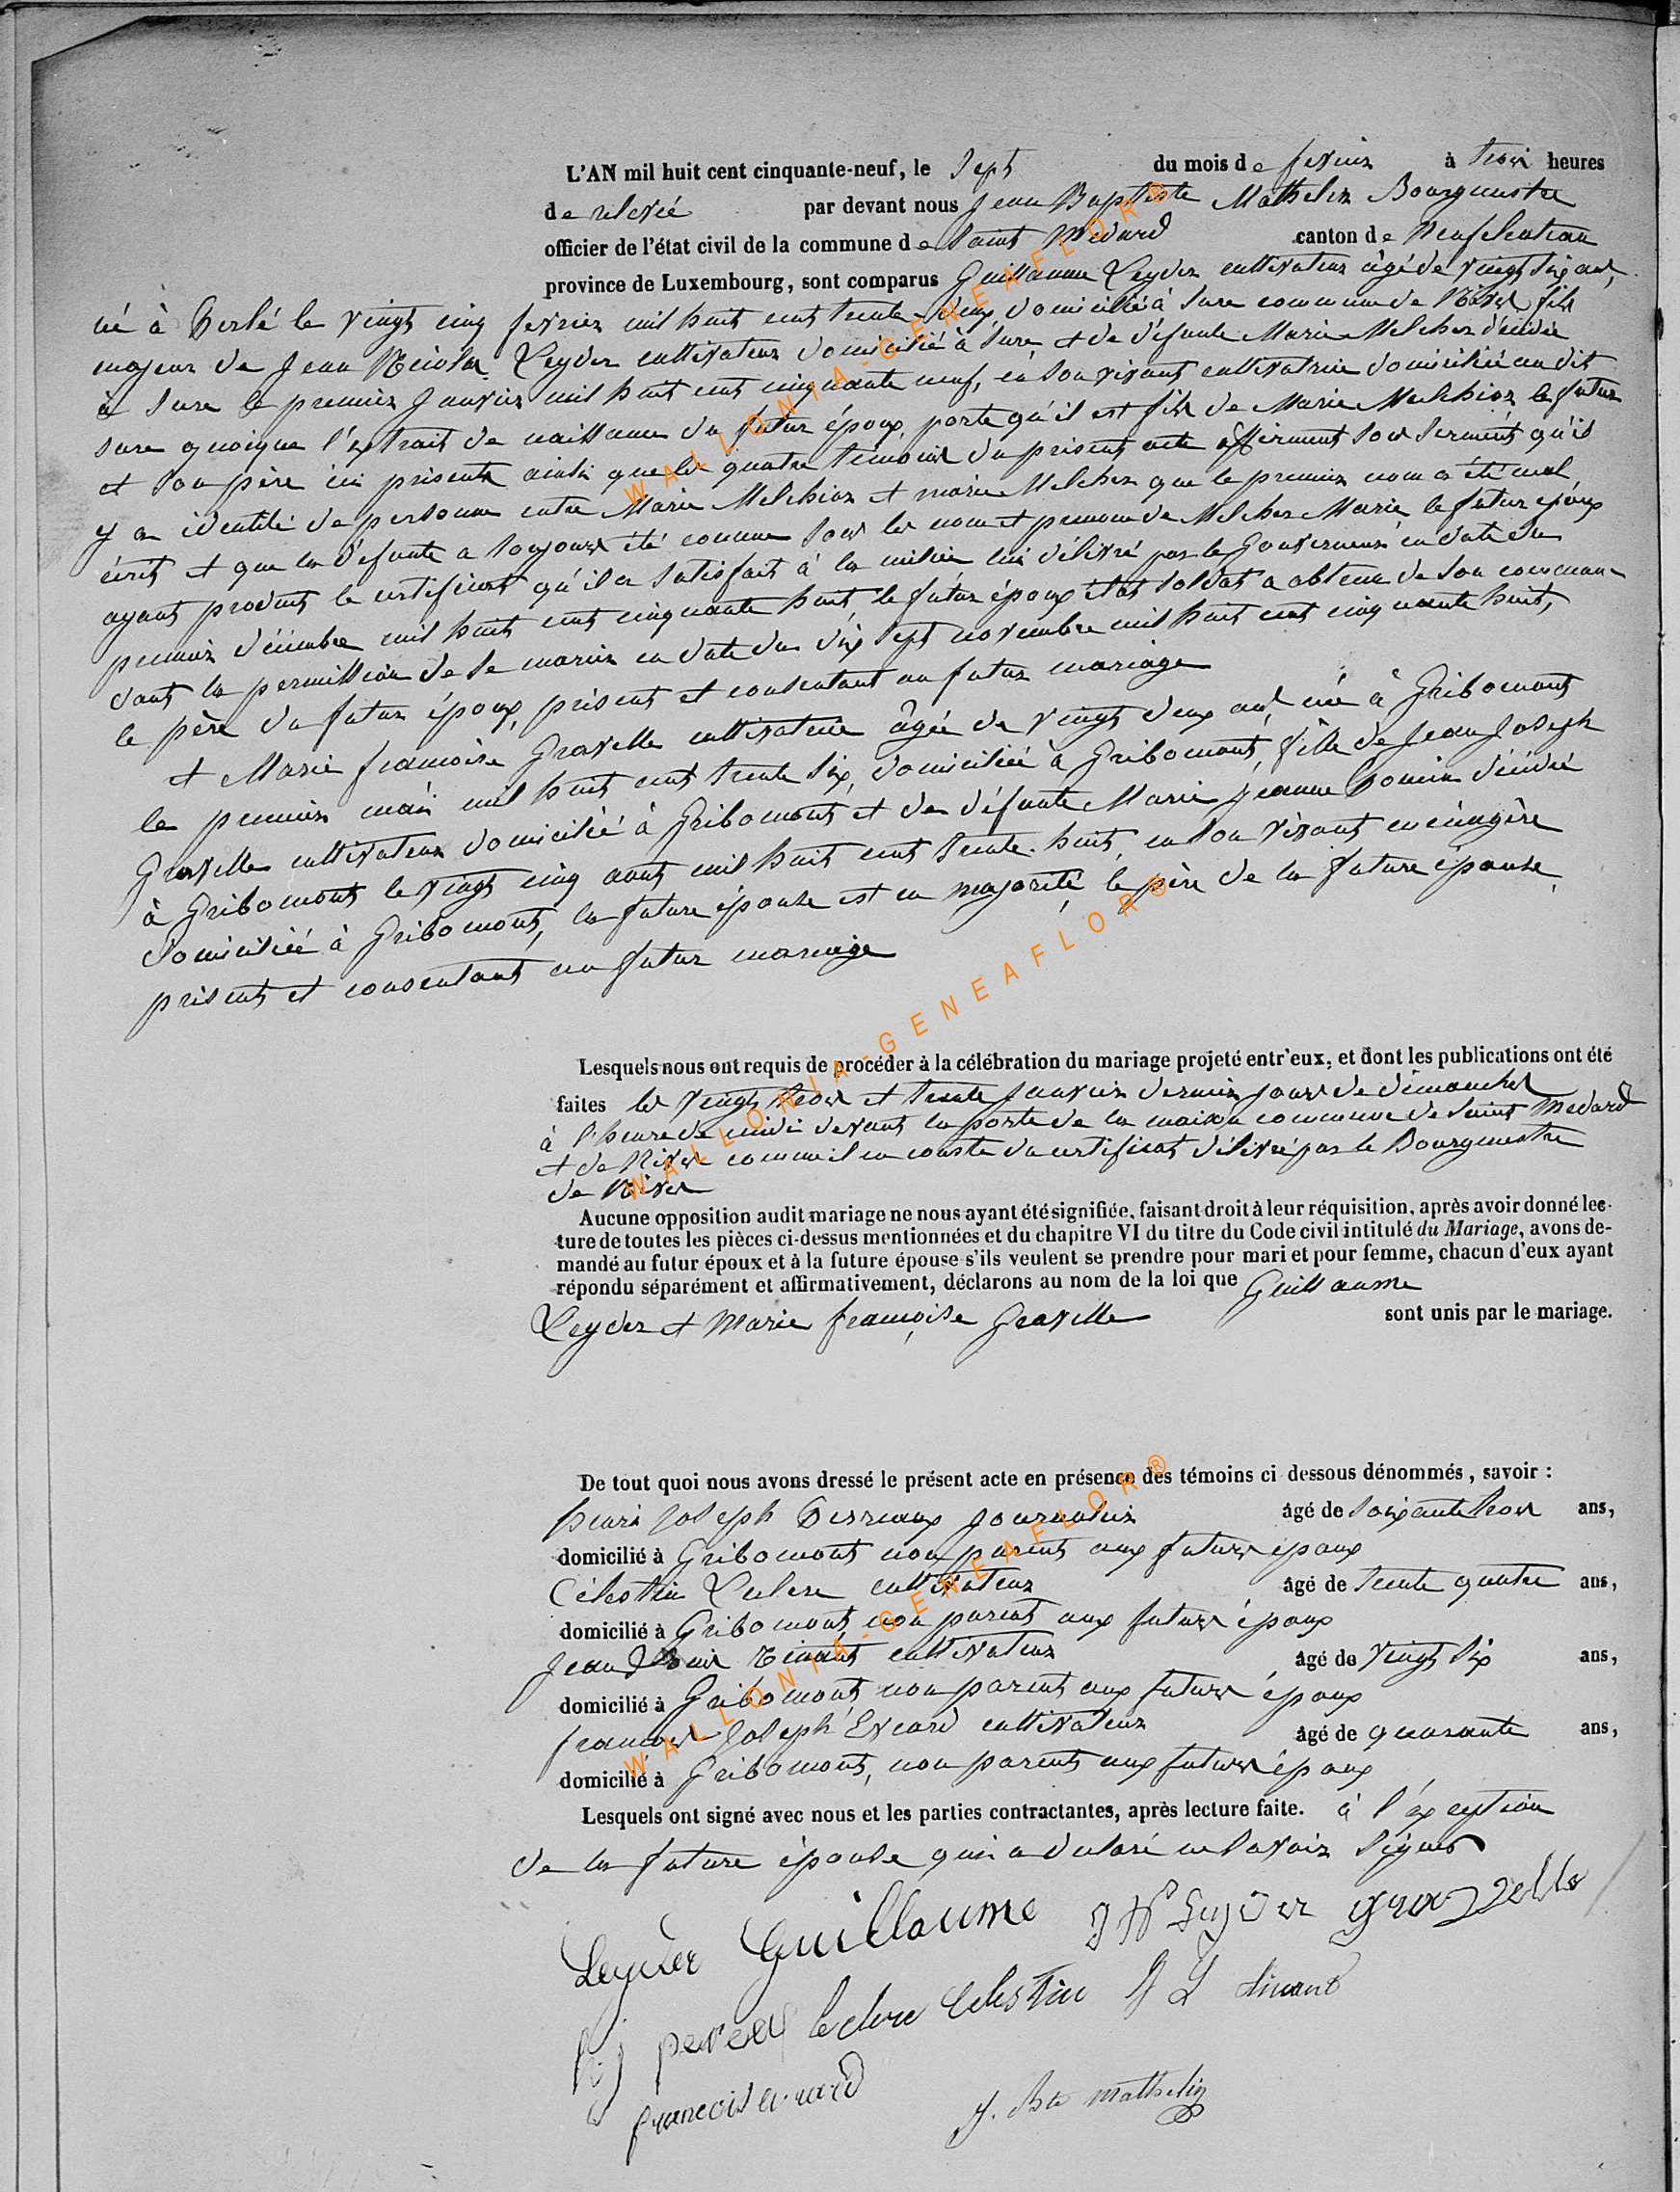 L'AN mil huit cent cinquante-neuf, le Sept du mois de fevrier à trois heures
de relevée par devant nous Jean Baptiste Mathelin Bourgmestre
officier de l'état civil de la commune de Saint Medard canton de Neufchateau
province de Luxembourg, sont comparus Guillaume Leyder cultivateur âgé de vingt six ans,
né à Perlé le vingt cinq fevrier mil huit cent trente-deux, domicilié à Sure commune de Nives fils
majeur de Jean Nicolas Leyder cultivateur domicilié à Sure, et de défunte Marie Melcher décédée
à Sure le premier Janvier mil huit cent cinquante neuf, en son vivant cultivatrice domiciliée au dit
Sure quoique l'extrait de naissance du futur époux, porte qu'il est fils de Marie Melchior le futur
et son père ici présents ainsi que les quatre témoins du présent acte affirment sous serment qu'il
y a identité de personne entre Marie Melchior et marie Melcher que le premier nom a été mal
écrit et que la défunte a toujours été connue sous les nom et prenom de Melcher Marie, le futur époux
ayant produit le certificat qu'il a satisfait à la milice lui délivré par le Gouverneur en date du
premier décembre mil huit cent cinquante huit, le futur époux étant soldat a obtenu de son comman-
dant la permission de se marier en date du dix sept novembre mil huit cent cinquante huit,
le père du futur époux, présent et consentant au futur mariage
et Marie françoise Gravelle cultivatrice âgée de vingt deux ans née à Gribomont
le premier mai mil huit cent trente six, domiciliée à Gribomont, fille de Jean Joseph
Gravelle cultivateur domicilié à Gribomont et de défunte Marie jéanne décédée
à Gribomont le vingt cinq aout mil huit cent trente-huit, en son vivant ménagère
domiciliée à Gribomont, la future épouse est en majorité, le père de la future épouse
présent et consentant au futur mariage
Lesquels nous ont requis de procéder à la célébration du mariage projeté entr'eux, et dont les publications ont été
faites les vingt trois et trente Janvier dernier jours de dimanches
à l'heure de midi devant la porte de la maison commune de Saint Medard
et de Nives comme il en conste du certificat délivré par le Bourgmestre
de Nives
Aucune opposition audit mariage ne nous ayant été signifiée, faisant droit à leur réquisition, après avoir donné lec-
ture de toutes les pièces ci-dessus mentionnées et du chapitre VI du titre du Code civil intitulé du Mariage, avons de-
mandé au futur époux et à la future épouse s'ils veulent se prendre pour mari et pour femme, chacun d'eux ayant
répondu séparément et affirmativement, déclarons au nom de la loi que Guillaume
Leyder et Marie françoise Gravelle sont unis par le mariage.
De tout quoi nous avons dressé le présent acte en présence des témoins ci dessous dénommés, savoir :
henri Joseph Journalier âgé de Soixante trois ans,
domicilié à Gribomont non parent aux futurs époux
Célestin Leclere cultivateur âgé de trente quatre ans,
domicilié à Gribomont, non parent aux futurs époux
Jean Louis Tinant cultivateur âgé de vingt six ans,
domicilié à Gribomont non parent aux futurs époux
françois Joseph Evrard cultivateur âgé de quarante ans,
domicilié à Gribomont, non parent aux futurs époux
Lesquels ont signé avec nous et les parties contractantes, après lecture faite. à l'exception
de la future épouse qui a declaré ne savoir signer
Leyder Guillaume J N Leyder gravelle
h j leclere Celestin J L tinant
francois evrard J. Bte Mathelin
WALLONIA-GENEAFLOR®
WALLONIA-GENEAFLOR®
WALLONIA-GENEAFLOR®